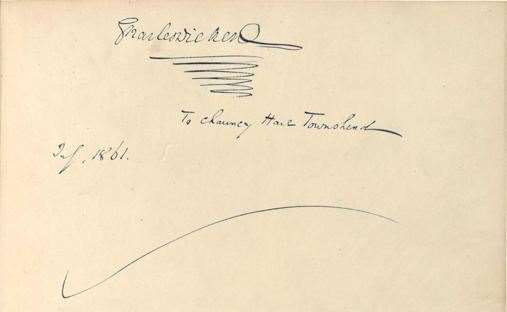 Charles Dickens
To Chauncy Hare Townshend
July, 1861.